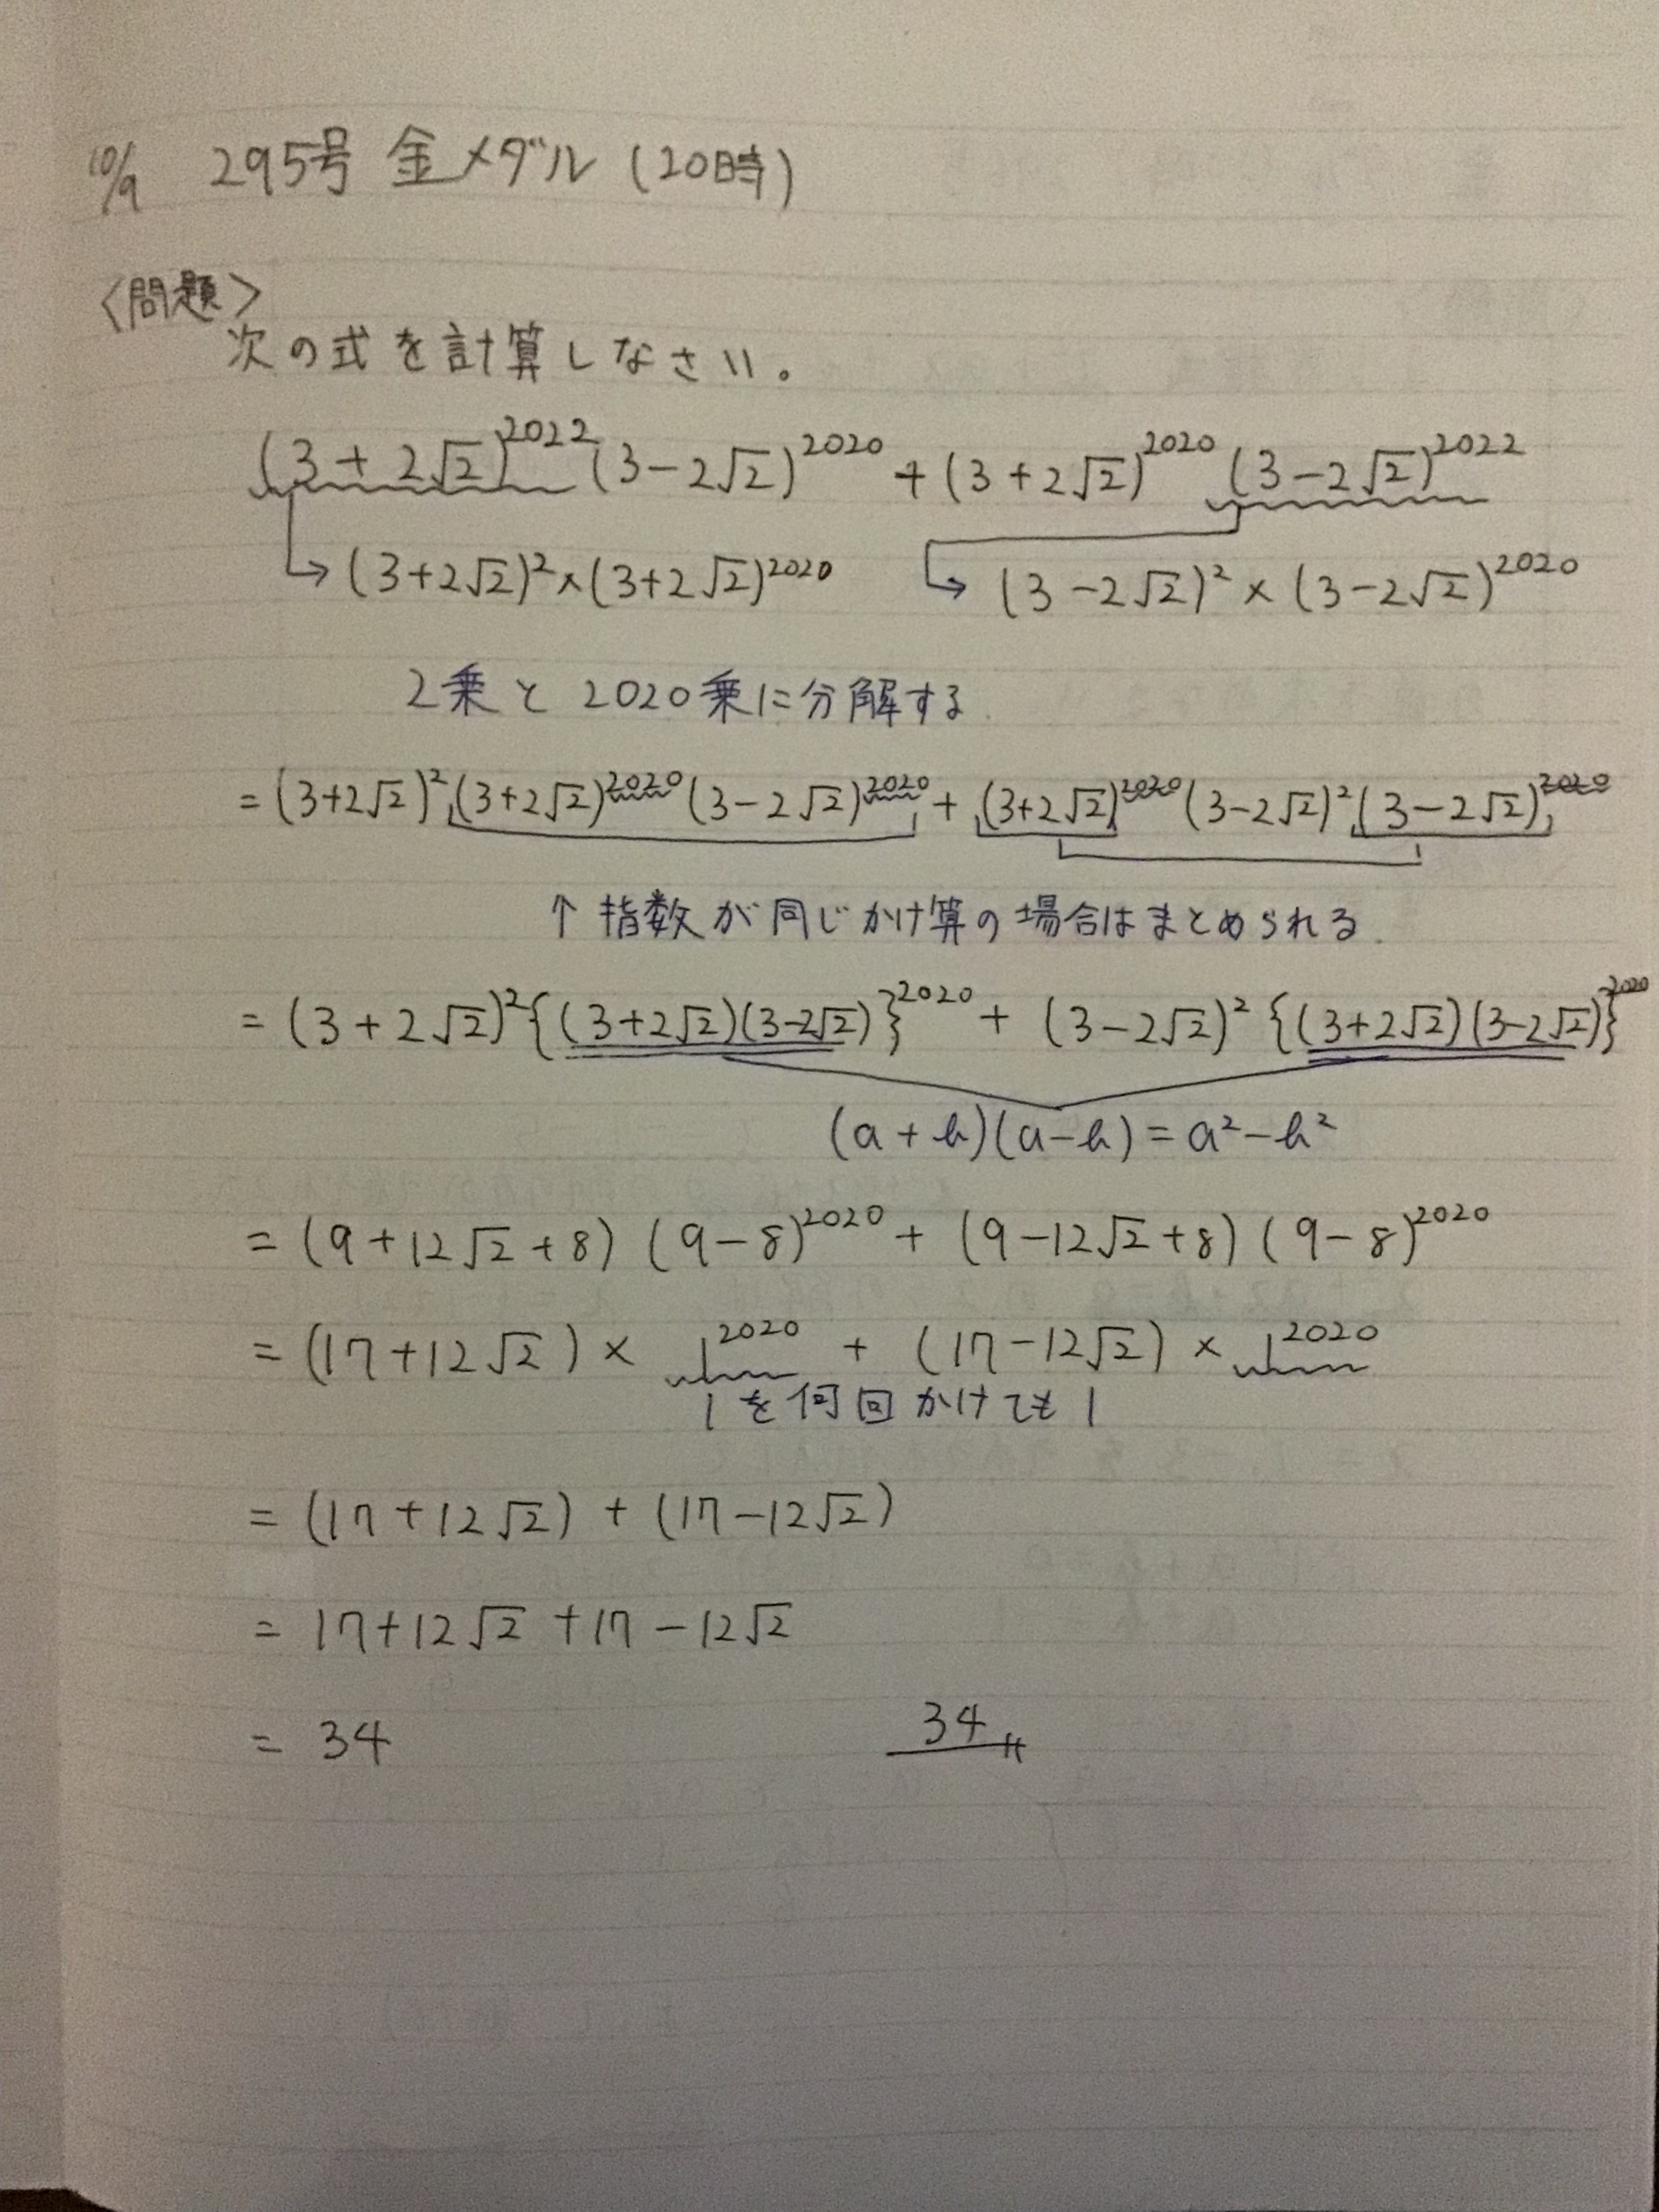 10/9 295号 金メダル (20時)
〈問題〉
次の式を計算しなさい。
(3+2√2)²⁰²²(3-2√2)²⁰²⁰+(3+2√2)²⁰²⁰(3-2√2)²⁰²²
→(3+2√2)²×(3+2√2)²⁰²⁰ →(3-2√2)²×(3-2√2)²⁰²⁰
2乗と2020乗に分解する
=(3+2√2)²(3+2√2)²⁰²⁰(3-2√2)²⁰²⁰+(3+2√2)²⁰²⁰(3-2√2)²(3-2√2)²⁰²⁰
↑指数が同じかけ算の場合はまとめられる
=(3+2√2)²{(3+2√2)(3-2√2)}²⁰²⁰+(3-2√2)²{(3+2√2)(3-2√2)}²⁰²⁰
(a+b)(a-b)=a²-b²
=(9+12√2+8)(9-8)²⁰²⁰+(9-12√2+8)(9-8)²⁰²⁰
=(17+12√2)×1²⁰²⁰+(17-12√2)×1²⁰²⁰
1を何回かけても1
=(17+12√2)+(17-12√2)
=17+12√2+17-12√2
=34 34